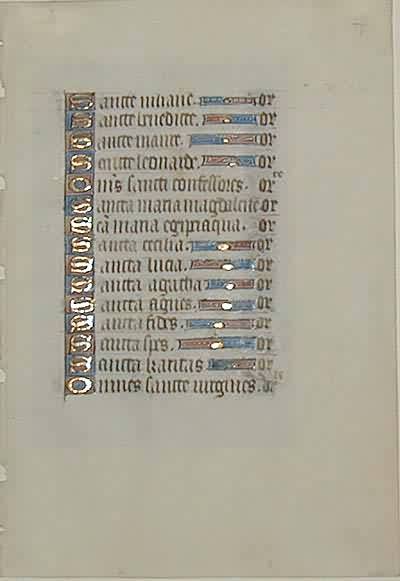 Sancte iuliane. or
Sancte benedicte. or
Sancte maure. or
Sancte leonarde. or
Omnes sancti confessores. or
Sancta maria magdalene or
Sca maria egiptiaqua. or
Sancta cecilia. or
Sancta lucia. or
Sancta agatha or
Sancta agnes. or
Sancta fides. or
Sancta spes. or
Sancta karitas or
Omnes sancte uirgines. or